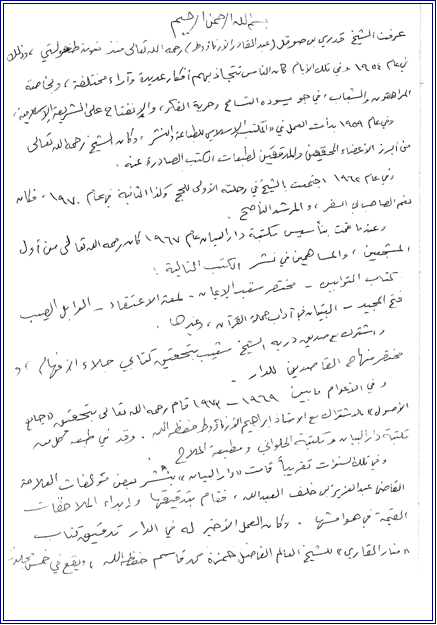 بسم الله الرحمن الرحيم
عرفت الشيخ قدري بن صوقل (عبد القادر الأرناؤوط) رحمه الله تعالى منذ نعومة طفولتي ، وذلك
في عام ١٩٥٤ وفي تلك الأيام كان الناس تتجاذبهم أفكار عديدة وآراء مختلفة ، وبخاصة
المراهقون والشباب ، في جو يسوده التسامح وحرية الفكر ، والانفتاح على الشريعة الإسلامية ،
وفي عام ١٩٥٩ بدأت العمل في «المكتب الإسلامي للطباعة والنشر ، وكان الشيخ رحمه الله تعالى
من أبرز الأعضاء المحققين والمدققين لطبعات الكتب الصادرة عنه .
وفي عام ١٩٦٢ اجتمعت بالشيخ في رحلته الأولى للحج وكذا الثانية في عام ١٩٧٠ . فكان
نعم الصاحب في السفر ، والمرشد الناصح .
وعندما قمت بتأسيس مكتبة دار البيان عام ١٩٦٧ كان رحمه الله تعالى من أول
المشجعين ، والمساهمين في نشر الكتب التالية :
كتاب التوابين – مختصر شعب الإيمان – لمعة الاعتقاد – الوابل الصيب
فتح المجيد – التبيان في آداب حملة القرآن ، وغيرها .
واشترك مع صديق دربه الشيخ شعيب بتحقيق كتابي جلاء الأفهام ، و
مختصر منهاج القاصدين للدار .
وفي الأعوام ما بين ١٩٦٩ – ١٩٧٣ قام رحمه الله تعالى بتحقيق «جامع
الأصول» بالاشتراك مع الأستاذ إبراهيم الأرناؤوط حفظه الله . وقد في طبعه كل من
مكتبة دار البيان ومكتبة الحلواني ومطبعة الملاح .
وفي تلك السنوات تقريباً قامت «دار البيان» بنشر بعض مؤلفات العلامة
القاضي عبد العزيز بن خلف العبد الله ، فقام بتدقيقها وإبداء الملاحظات
القيمة في هوامشها . وكان العمل الأخير له في الدار تدقيق كتاب
«منار القاري» للشيخ العالم الفاضل حمزة محمد قاسم حفظه الله ، ويقع في خمس مجلدات